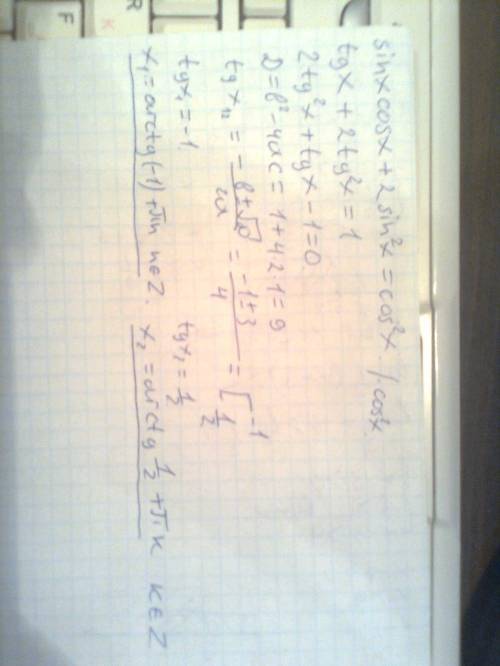 sinx cosx + 2 sin²x = cos²x / cos²x
tgx + 2tg²x = 1
2tg²x + tgx - 1 = 0
D = b² - 4ac = 1 + 4·2·1 = 9
tg x₁₂ = -b ± √D / 2a = -1 ± 3 / 4 = [ -1 1/2
tgx₁ = -1 tgx₂ = 1/2
x₁ = arctg(-1) + πn n∈Z. x₂ = arctg 1/2 + πk k∈Z
R
F
K